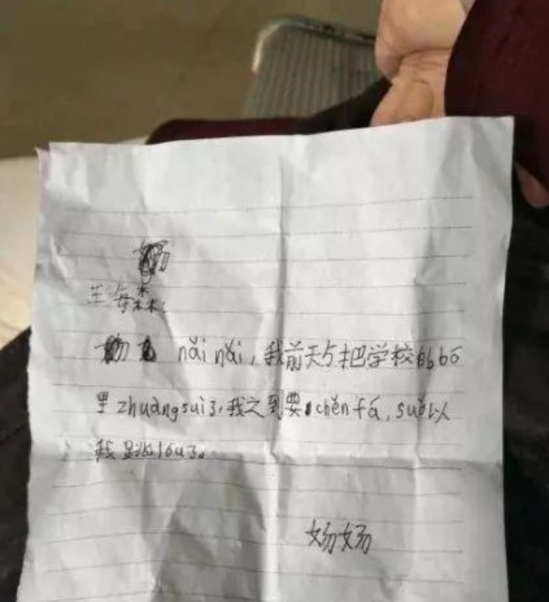 nǎi nǎi,我前天与把学校的bō
里zhuàngsuì了,我之到要chěnfá,suǒ以
我跳lóu了。